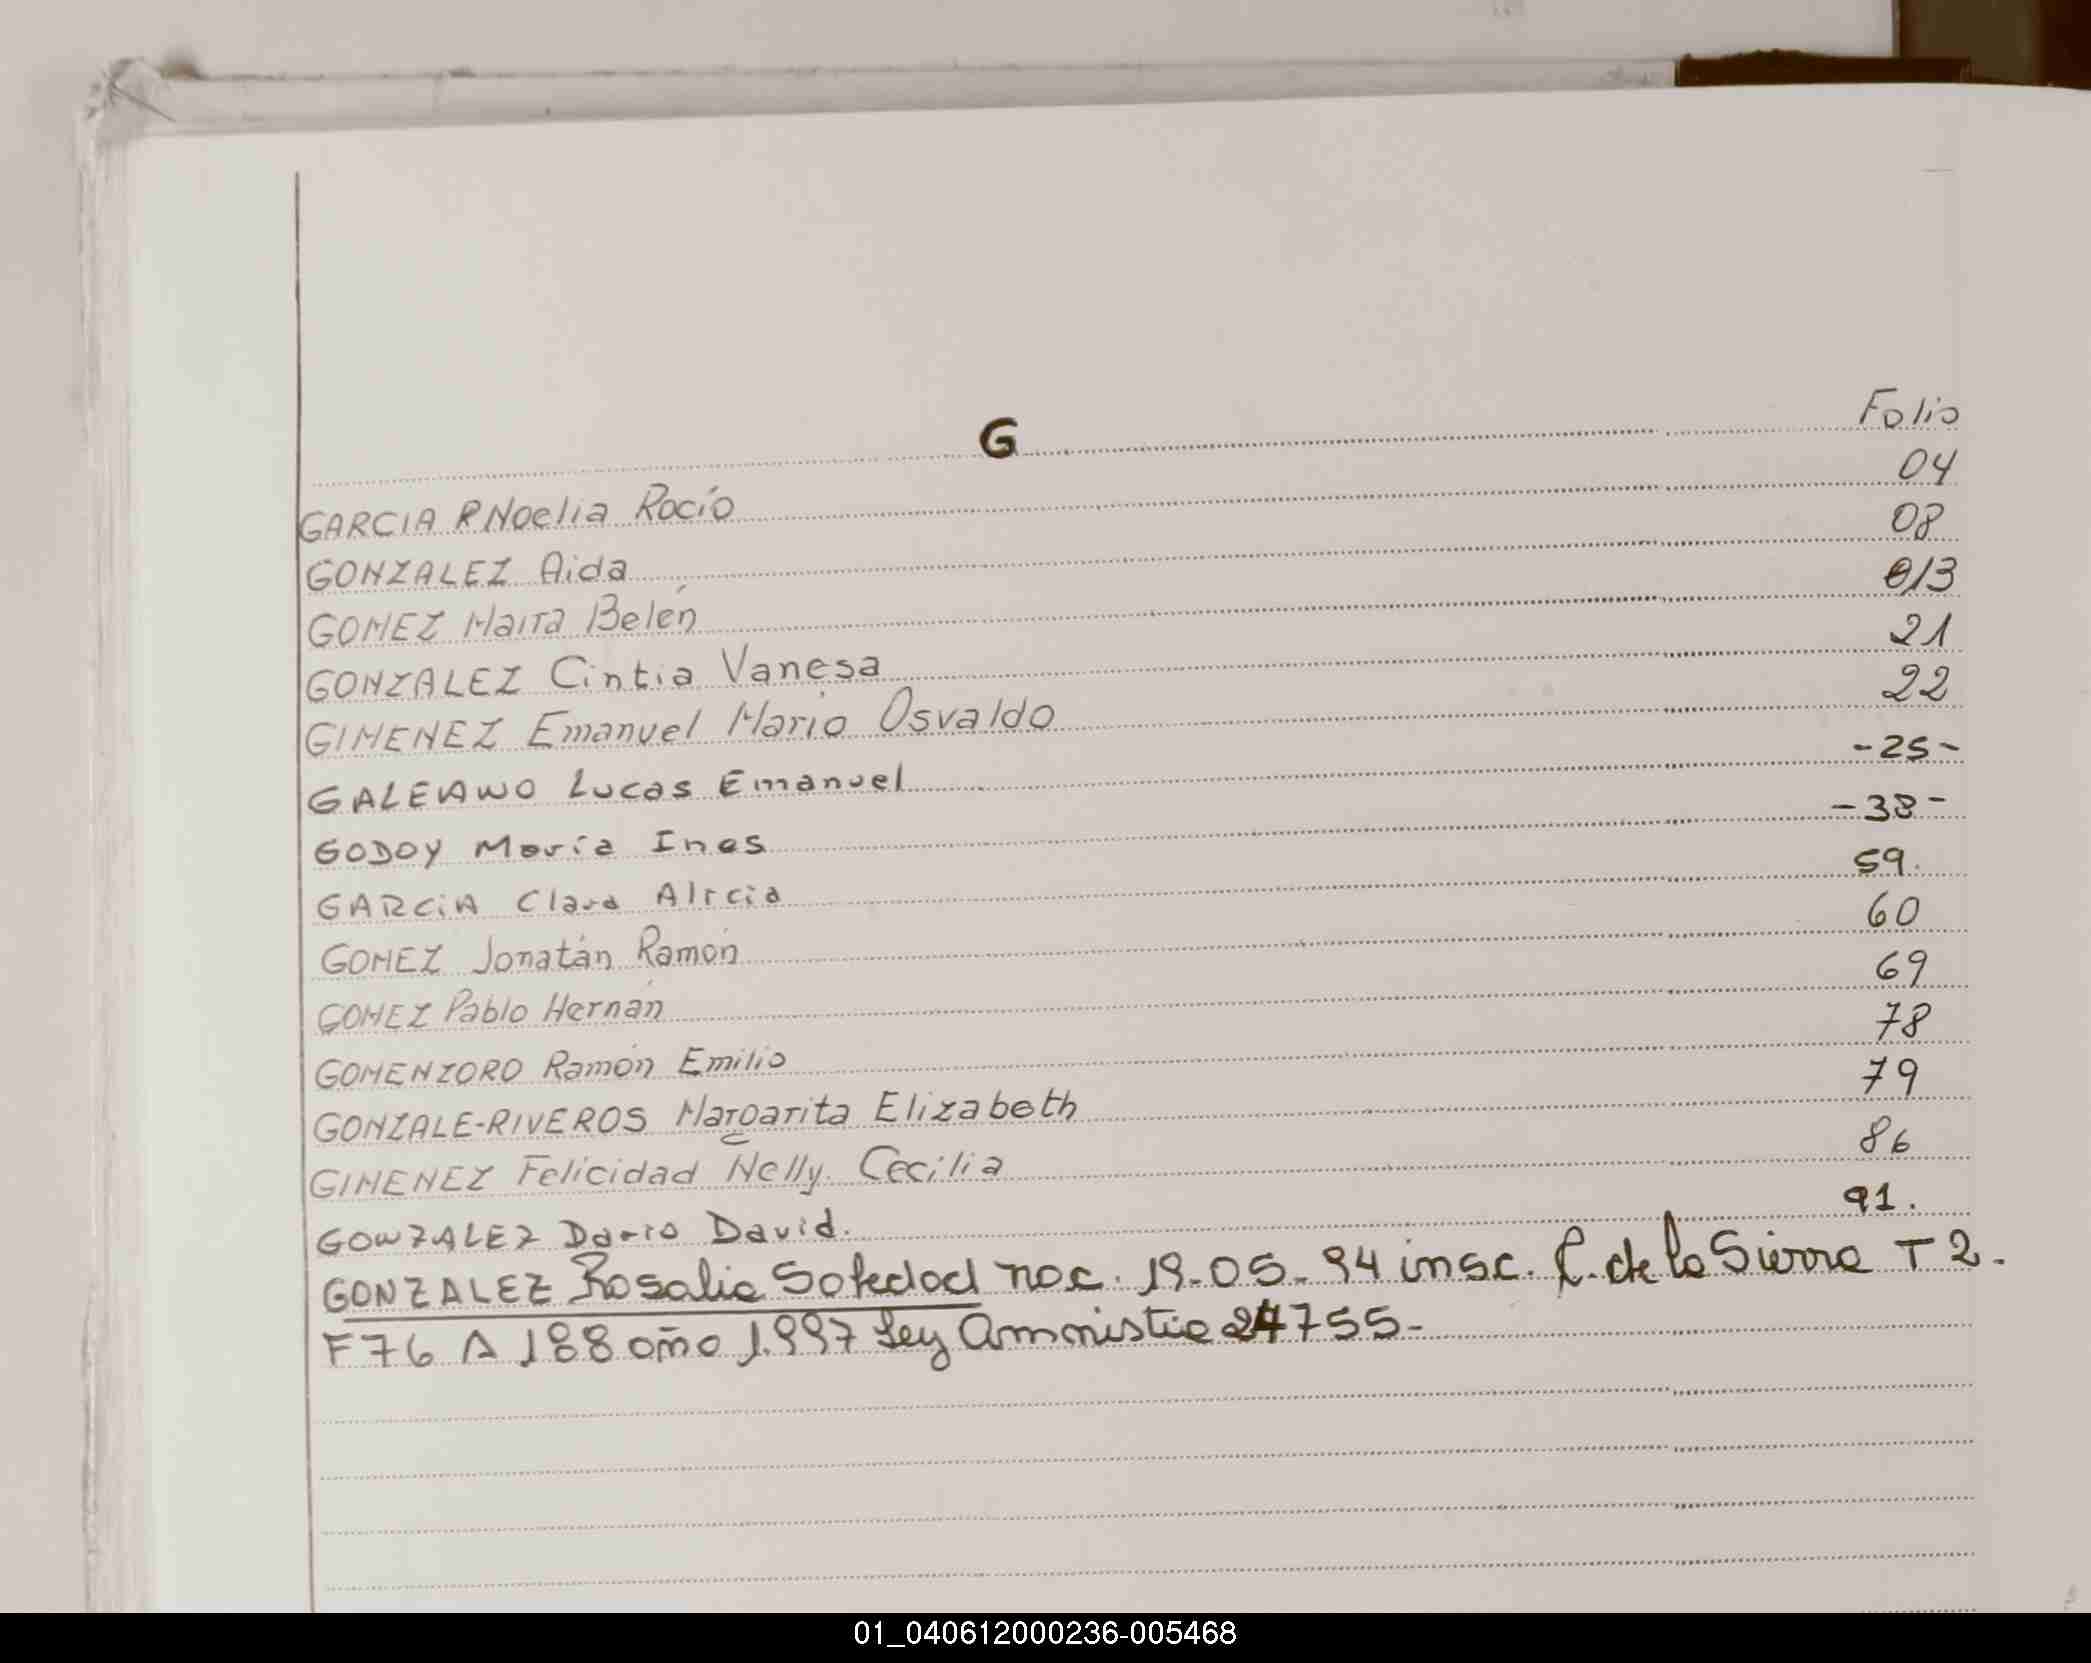 G Folio
GARCIA R Noelia Rocío 04
GONZALEZ Aida 08
GOMEZ Maira Belén 013
GONZALEZ Cintia Vanesa 21
GIMENEZ Emanuel Mario Osvaldo 22
GALEANO Lucas Emanuel -25-
GODOY María Ines -38-
GARCiA Clara Alicia 59.
GOMEZ Jonatán Ramón 60
GOMEZ Pablo Hernán 69
GOMENZORO Ramón Emilio 78
GONZALE-RIVEROS Margarita Elizabeth 79
GIMENEZ Felicidad Nelly Cecilia 86
GONZALEZ Dario David. 91.
GONZALEZ Rosalia Soledad nac. 19-05-94 insc. C. de la Sierra T 2.
F76 A 188 año 1.997 Ley Amnistia 24755-
01_040612000236-005468